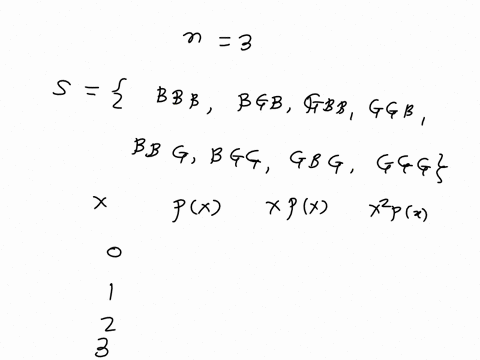 n = 3
S = { BBB, BGB, GBB, GGB,
BBG, BGG, GBG, GGG}
x p(x) x p(x) x²p(x)
0
1
2
3